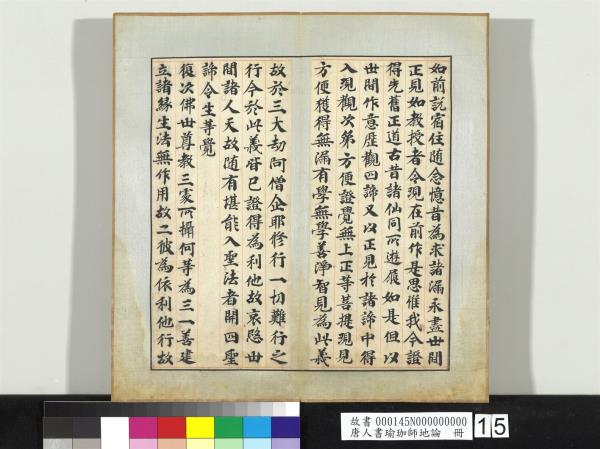 如前說宿住随念憶昔為求諸漏永盡世間
正見如教授者令現在前作是思惟我今證
得先舊正道古昔諸仙同所遊履如是但以
世間作意歷觀四諦又以正見於諸諦中得
入現觀次第方便證覺無上正等菩提現見
方便獲得無漏有學無學善淨智見為此義
故於三大劫阿僧企耶修行一切難行之
行今於此義皆已證得為利他故哀愍世
間諸人天故随有堪能入聖法者開四聖
諦令生等覺
復次佛世尊教三處所攝何等為三一善建
立諸緣生法無作用故二彼為依利他行故
故書 000145N000000000
唐人書瑜珈師地論 冊
15